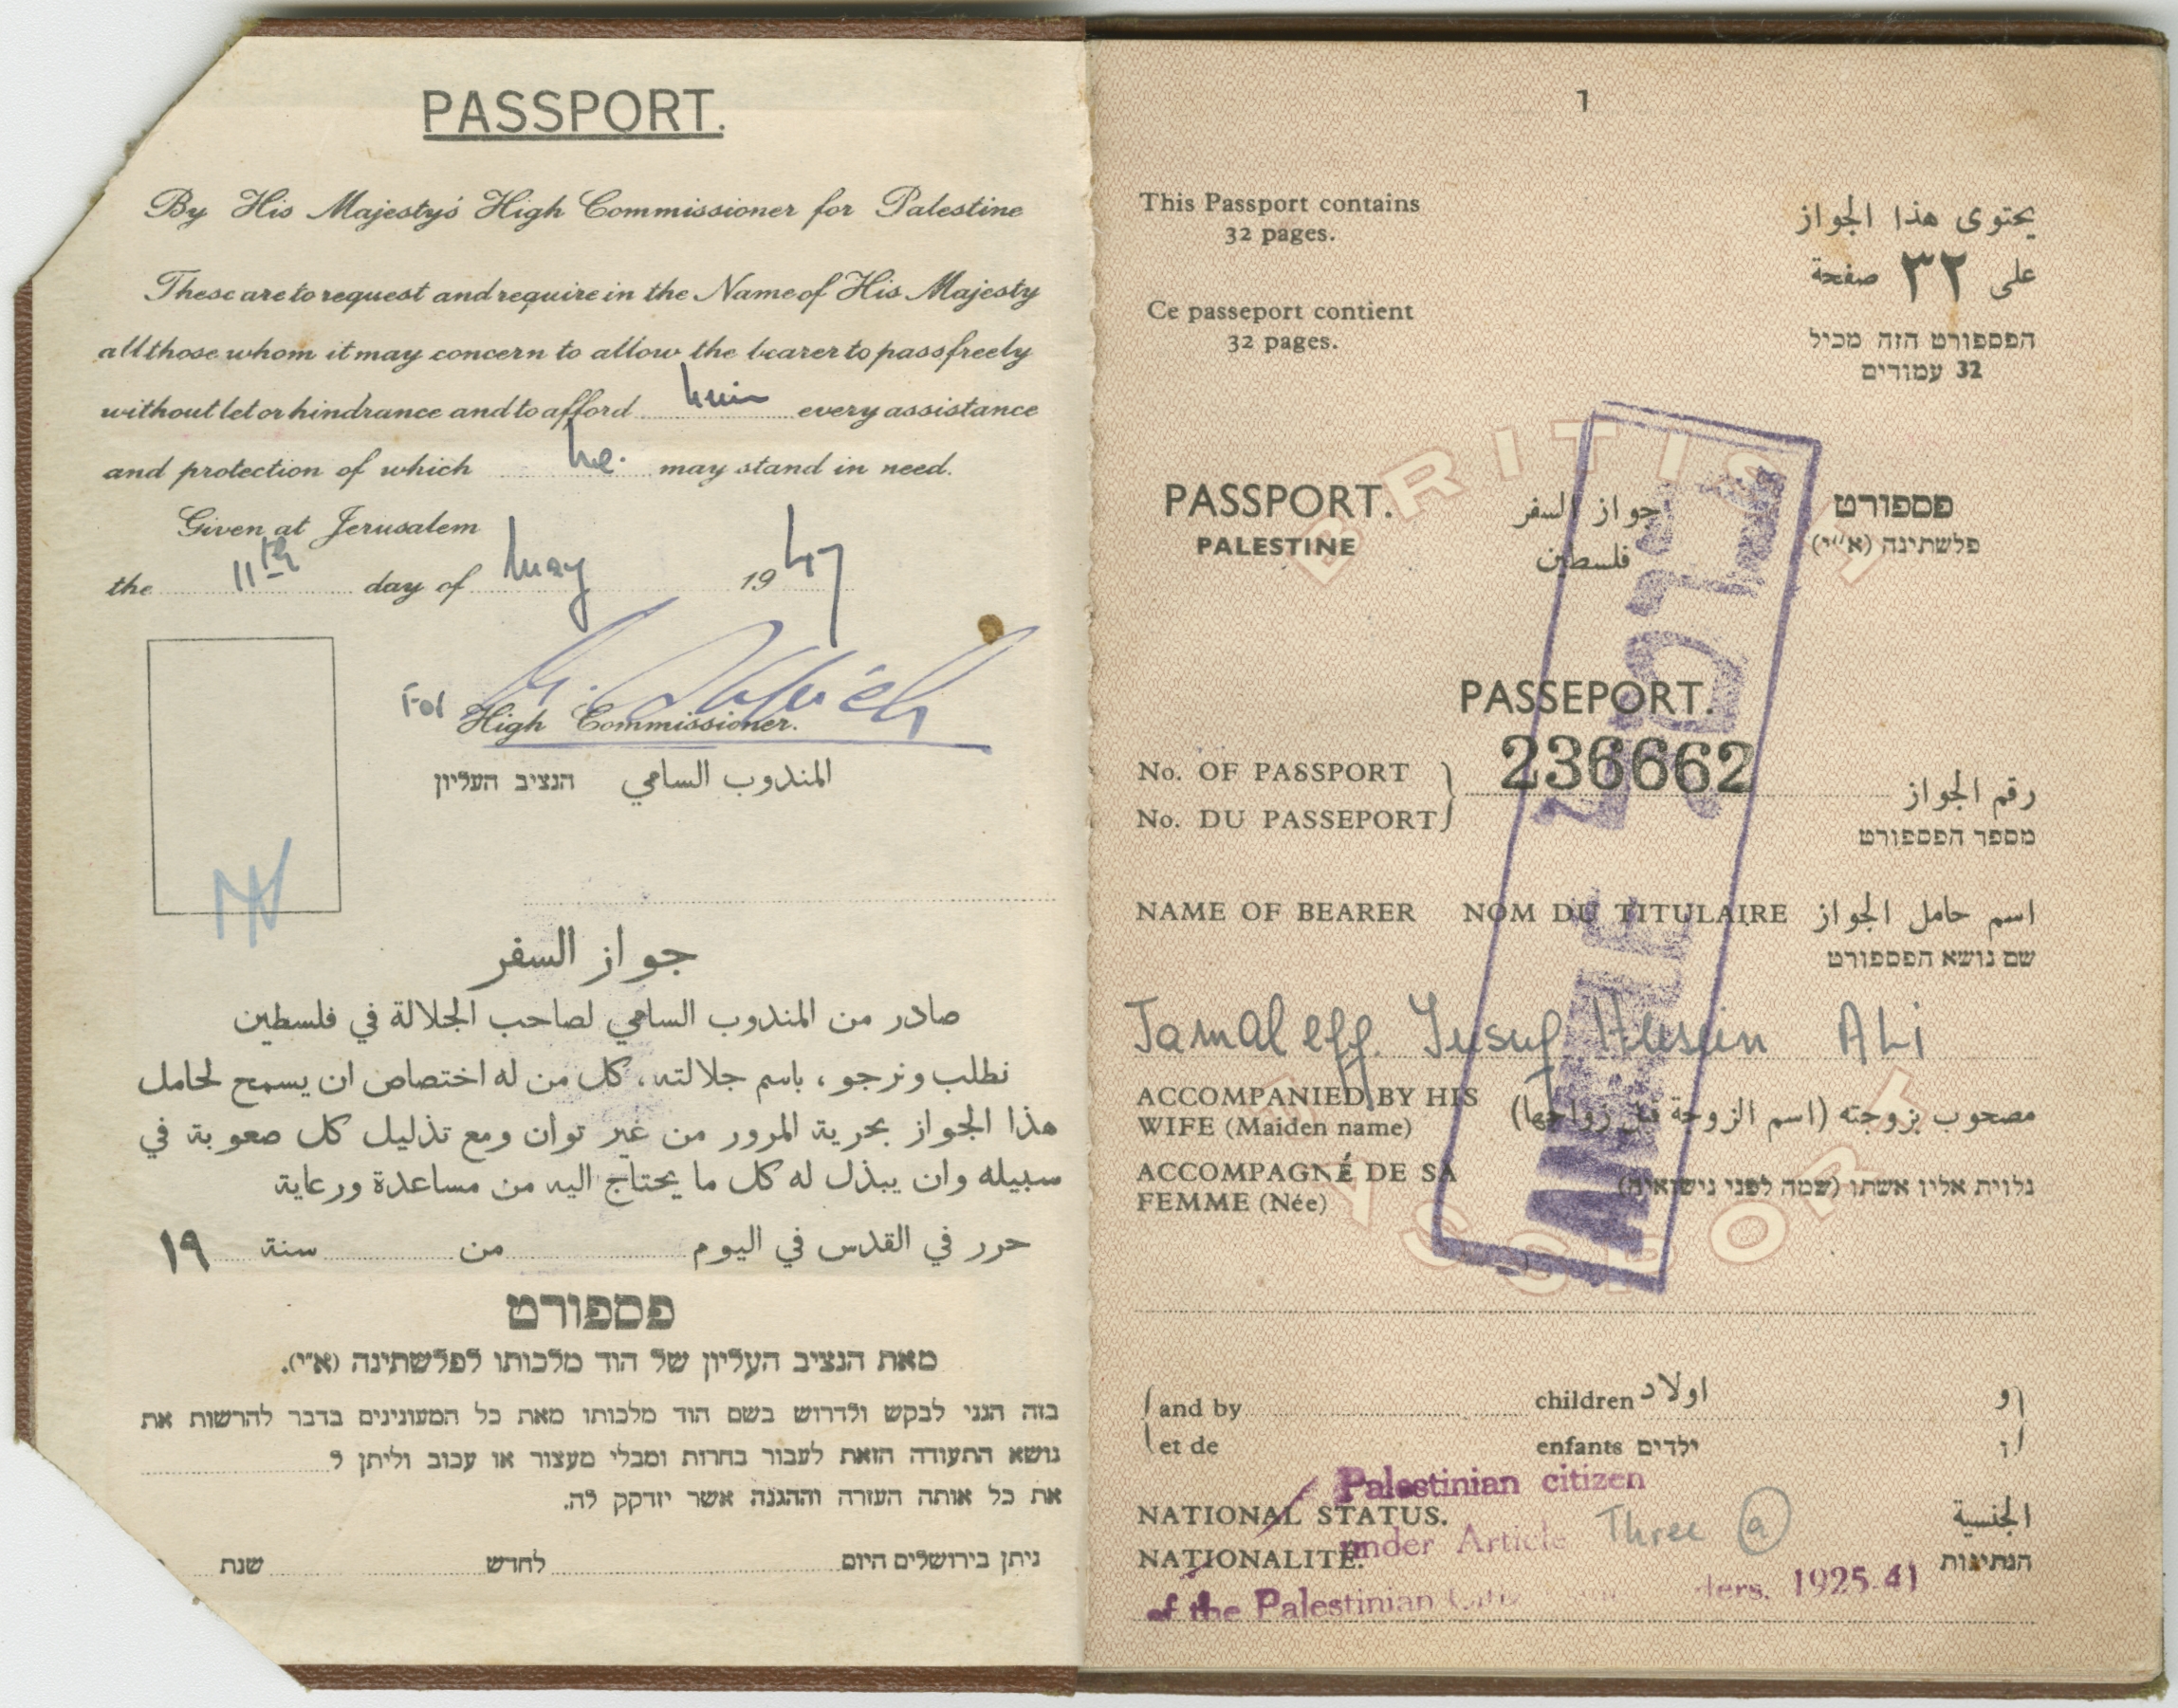 PASSPORT.
By His Majesty's High Commissioner for Palestine
These are to request and require in the Name of His Majesty
all those whom it may concern to allow the bearer to pass freely
without let or hindrance and to afford him every assistance
and protection of which he may stand in need.
Given at Jerusalem
the 11th day of May 1947
For
High Commissioner.
המנציב העליון المندوب السامي
جواز السفر
صادر من المندوب السامي لصاحب الجلالة في فلسطين
نطلب ونرجو، باسم جلالته، كل من له اختصاص ان يسمح لحامل
هذا الجواز بحرية المرور من غير توان ومع تذليل كل صعوبة في
سبيله وان يبذل له كل ما يحتاج اليه من مساعدة ورعاية
حرر في القدس في اليوم من سنة ١٩
פספורט
מאת הנציב העליון של הוד מלכותו לפלשתינה (א"י).
בזה הנני לבקש ולדרוש בשם הוד מלכותו מאת כל המעונינים בדבר להרשות את
נושא התעודה הזאת לעבור בחרות ומבלי מעצור או עכוב וליתן ל
את כל אותה העזרה וההגנה אשר יזדקק לה.
ניתן בירושלים היום לחדש שנת
1
This Passport contains
32 pages.
يحتوى هذا الجواز
على ٣٢ صفحة
Ce passeport contient
32 pages.
הפספורט הזה מכיל
32 עמודים
BRITISH
PASSPORT. جواز السفر פספורט
PALESTINE فلسطين פלשתינה (א"י)
PASSEPORT.
No. OF PASSPORT 236662 رقم الجواز
No. DU PASSEPORT מספר הפספורט
NAME OF BEARER NOM DU TITULAIRE اسم حامل الجواز
שם נושא הפספורט
Jamal eff. Yusuf Husein ALi
ACCOMPANIED BY HIS
WIFE (Maiden name) مصحوب بزوجته (اسم الزوجة قبل زواجها)
ACCOMPAGNÉ DE SA
FEMME (Née) נלוית אליו אשתו (שמה לפני נישואיה)
PASSPORT
and by children اولاد و
et de enfants ילדים ו
Palestinian citizen
NATIONAL STATUS. الجنسية
under Article Three (a)
NATIONALITÉ. הנתינות
of the Palestinian 1925-41